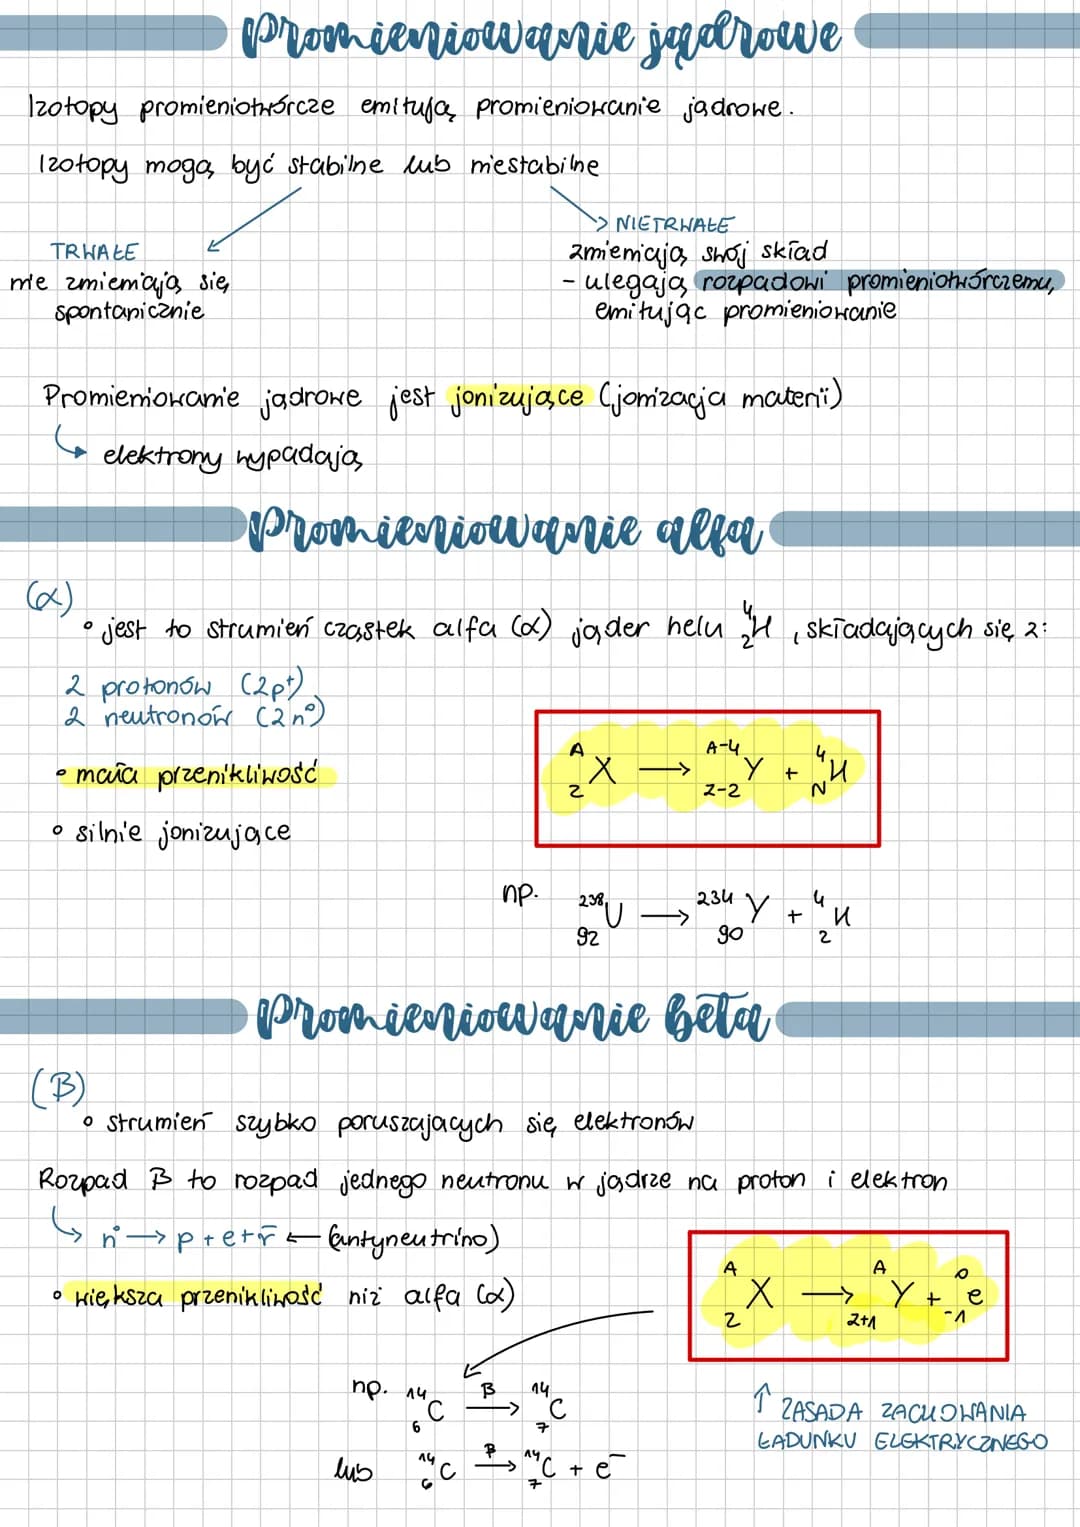 Promieniowanie jądrowe
Izotopy promieniotwórcze emitują promieniowanie jądrowe.
Izotopy mogą być stabilne lub niestabilne
TRWAŁE
nie zmieniają się
spontanicznie
NIETRWAŁE
zmieniają swój skład
- ulegają rozpadowi promieniotwórczemu,
emitując promieniowanie
Promieniowanie jądrowe jest jonizujące (jonizacja materii)
elektrony wypadają
Promieniowanie alfa
(α)
• jest to strumień cząstek alfa (α) jąder helu ⁴₂H, składających się z:
2 protonów (2p⁺)
2 neutronów (2n⁰)
• mała przenikliwość
• silnie jonizujące
ᴬ_Z X → ᴬ⁻⁴_Z-2 Y + ⁴_N H
np. ²³⁸₉₂U → ²³⁴₉₀Y + ⁴₂H
Promieniowanie beta
(B)
• strumień szybko poruszających się elektronów
Rozpad B to rozpad jednego neutronu w jądrze na proton i elektron
n° → p + e + r̄ ← (antyneutrino)
• większa przenikliwość niż alfa (α)
ᴬ_Z X → ᴬ_Z+1 Y + ⁰₋₁e
np. ¹⁴₆C B→ ¹⁴₇C
lub ¹⁴₆C B→ ¹⁴₇C + e⁻
↑ ZASADA ZACHOWANIA
ŁADUNKU ELEKTRYCZNEGO